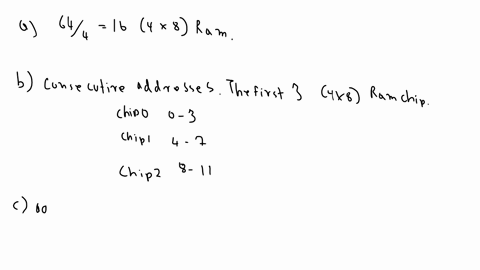 a) 64/4 = 16 (4 x 8) Ram.
b) Consecutive addresses. The first 3 (4x8) Ram chip.
chip0 0-3
chip1 4-7
chip2 8-11
c)